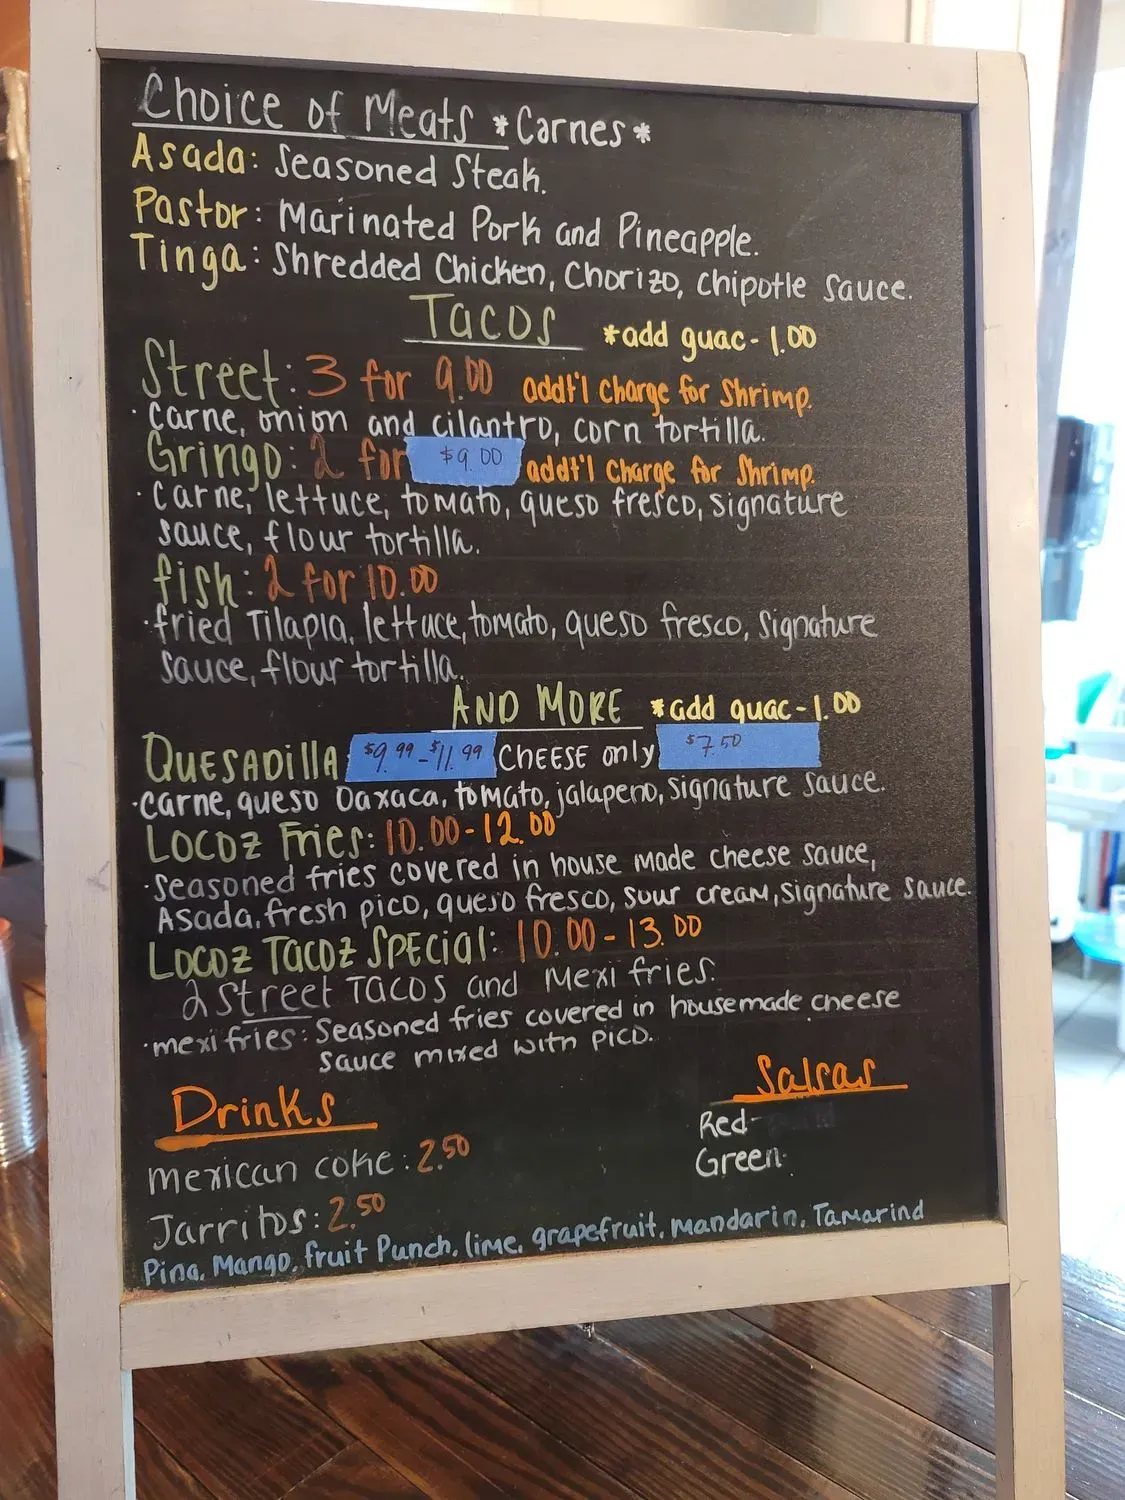 Choice of Meats *Carnes*
Asada: Seasoned Steak.
Pastor: Marinated Pork and Pineapple.
Tinga: Shredded Chicken, Chorizo, Chipotle Sauce.
Tacos *add guac- 1.00
Street: 3 for 9.00 addt'l charge for Shrimp.
· Carne, onion and cilantro, corn tortilla.
Gringo: 2 for $9.00 addt'l Charge for Shrimp.
· Carne, lettuce, tomato, queso fresco, signature
sauce, flour tortilla.
fish: 2 for 10.00
· fried Tilapia, lettuce, tomato, queso fresco, Signature
Sauce, flour tortilla.
AND MORE *add guac- 1.00
QUESADilla $9.99-$11.99 CHEESE only $7.50
· Carne, queso Oaxaca, tomato, jalapeno, signature sauce.
Locoz Fries: 10.00-12.00
· Seasoned fries covered in house made cheese sauce,
Asada, fresh pico, queso fresco, sour cream, signature sauce.
Locoz Tacoz Special: 10.00-13.00
2 Street TACOS and Mexi fries.
· mexi fries: Seasoned fries covered in housemade cheese
sauce mixed with pico.
Drinks
Mexican coke: 2.50
Jarritos: 2.50
Salsas
Red-
Green-
Pina, Mango, fruit Punch, lime, grapefruit, Mandarin, Tamarind